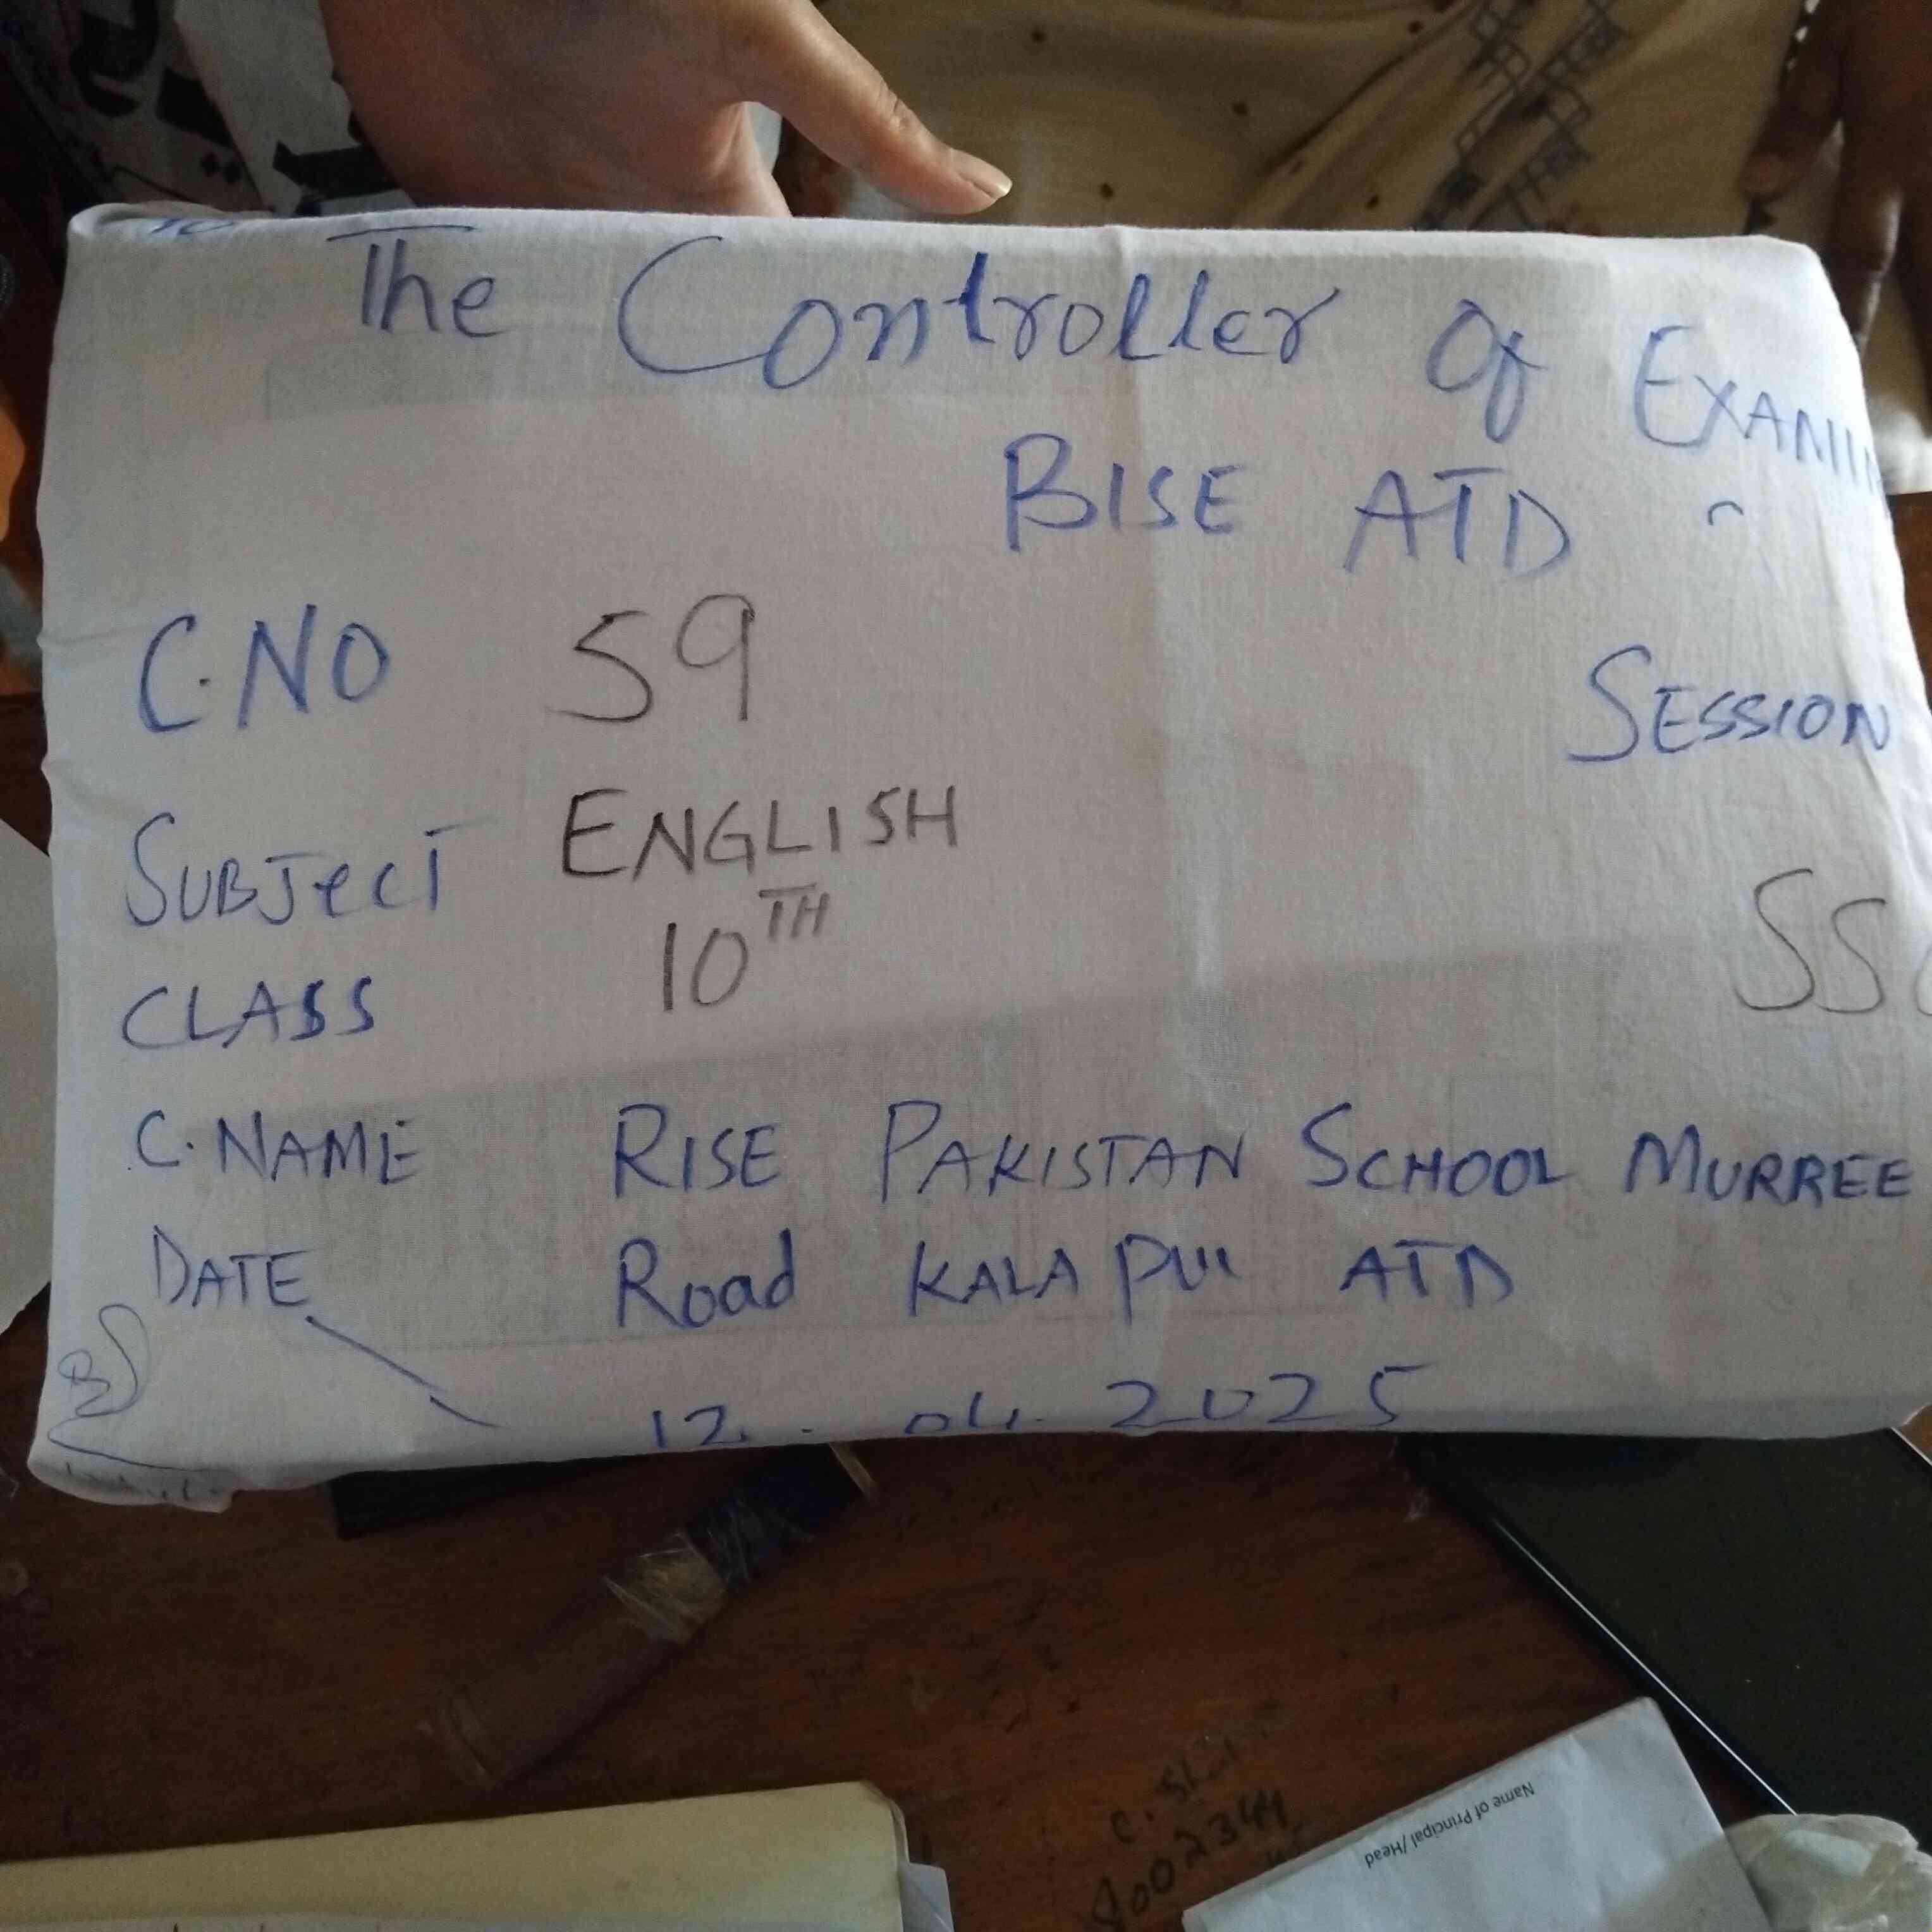 To
The Controller Of EXAMIN
BISE ATD
C.NO 59
SESSION
SUBJecT ENGLISH
CLASS 10TH
SS
C.NAME RISE PAKISTAN SCHOOL MURREE
Road KALA PUL ATD
DATE
12. 04. 2025
Name of Principal/Head
C.